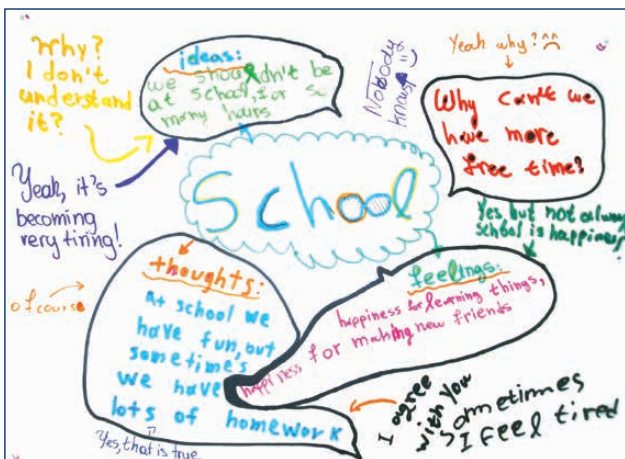 Why?
I don't
understand
it?
ideas:
we shouldn't be
at school, for so
many hours
Nobody
knows
Yeah why?
Why can't we
have more
free time?
Yeah, it's
becoming
very tiring!
School
Yes, but not always
school is happiness
thoughts:
At school we
have fun, but
sometime's
we have
lots of homework
of course
Yes, that is true
feelings:
happiness for learning things,
happiness for making new friends
I agree
with you
sometimes
I feel tired